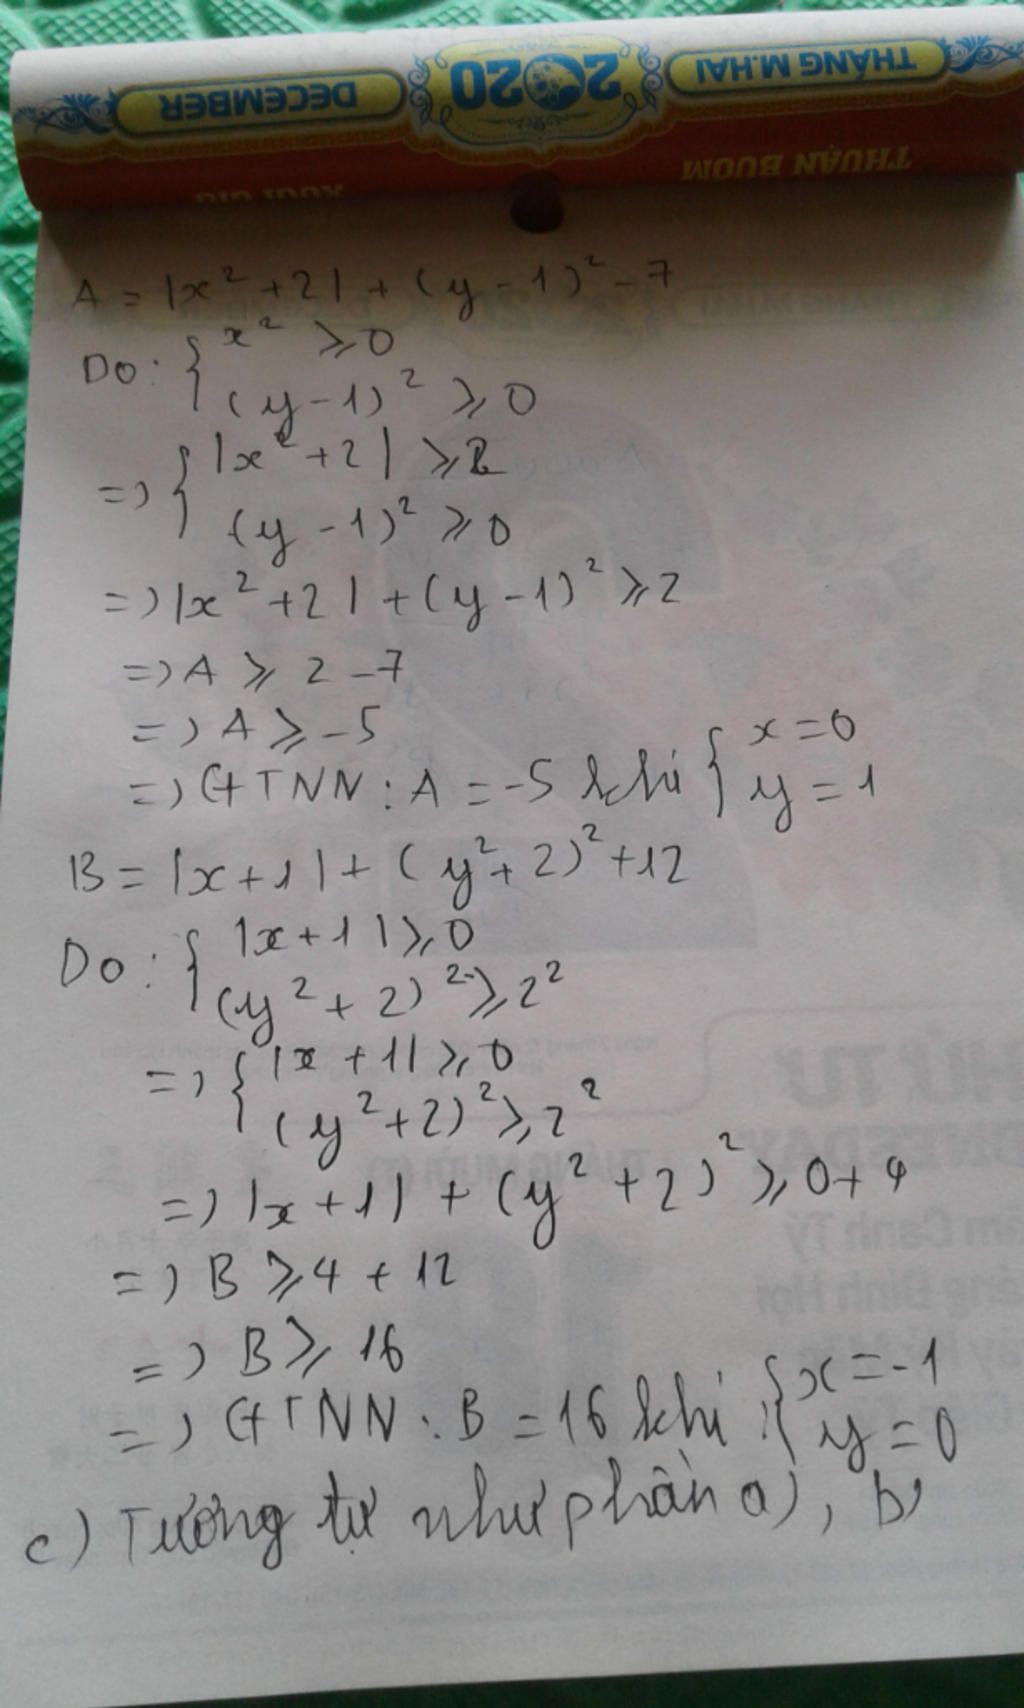 THÁNG M.HAI 2020 DECEMBER
THUẬN BUỒM
A = |x² + 2| + (y - 1)² - 7
Do: { x² ⩾ 0
(y - 1)² ⩾ 0
=> { |x² + 2| ⩾ 2
(y - 1)² ⩾ 0
=> |x² + 2| + (y - 1)² ⩾ 2
=> A ⩾ 2 - 7
=> A ⩾ -5
=> GTNN : A = -5 khi { x = 0
y = 1
B = |x + 1| + (y² + 2)² + 12
Do : { |x + 1| ⩾ 0
(y² + 2)² ⩾ 2²
=> { |x + 1| ⩾ 0
(y² + 2)² ⩾ 2²
=> |x + 1| + (y² + 2)² ⩾ 0 + 4
=> B ⩾ 4 + 12
=> B ⩾ 16
=> GTNN : B = 16 khi : { x = -1
y = 0
c) Tương tự như phần a), b)